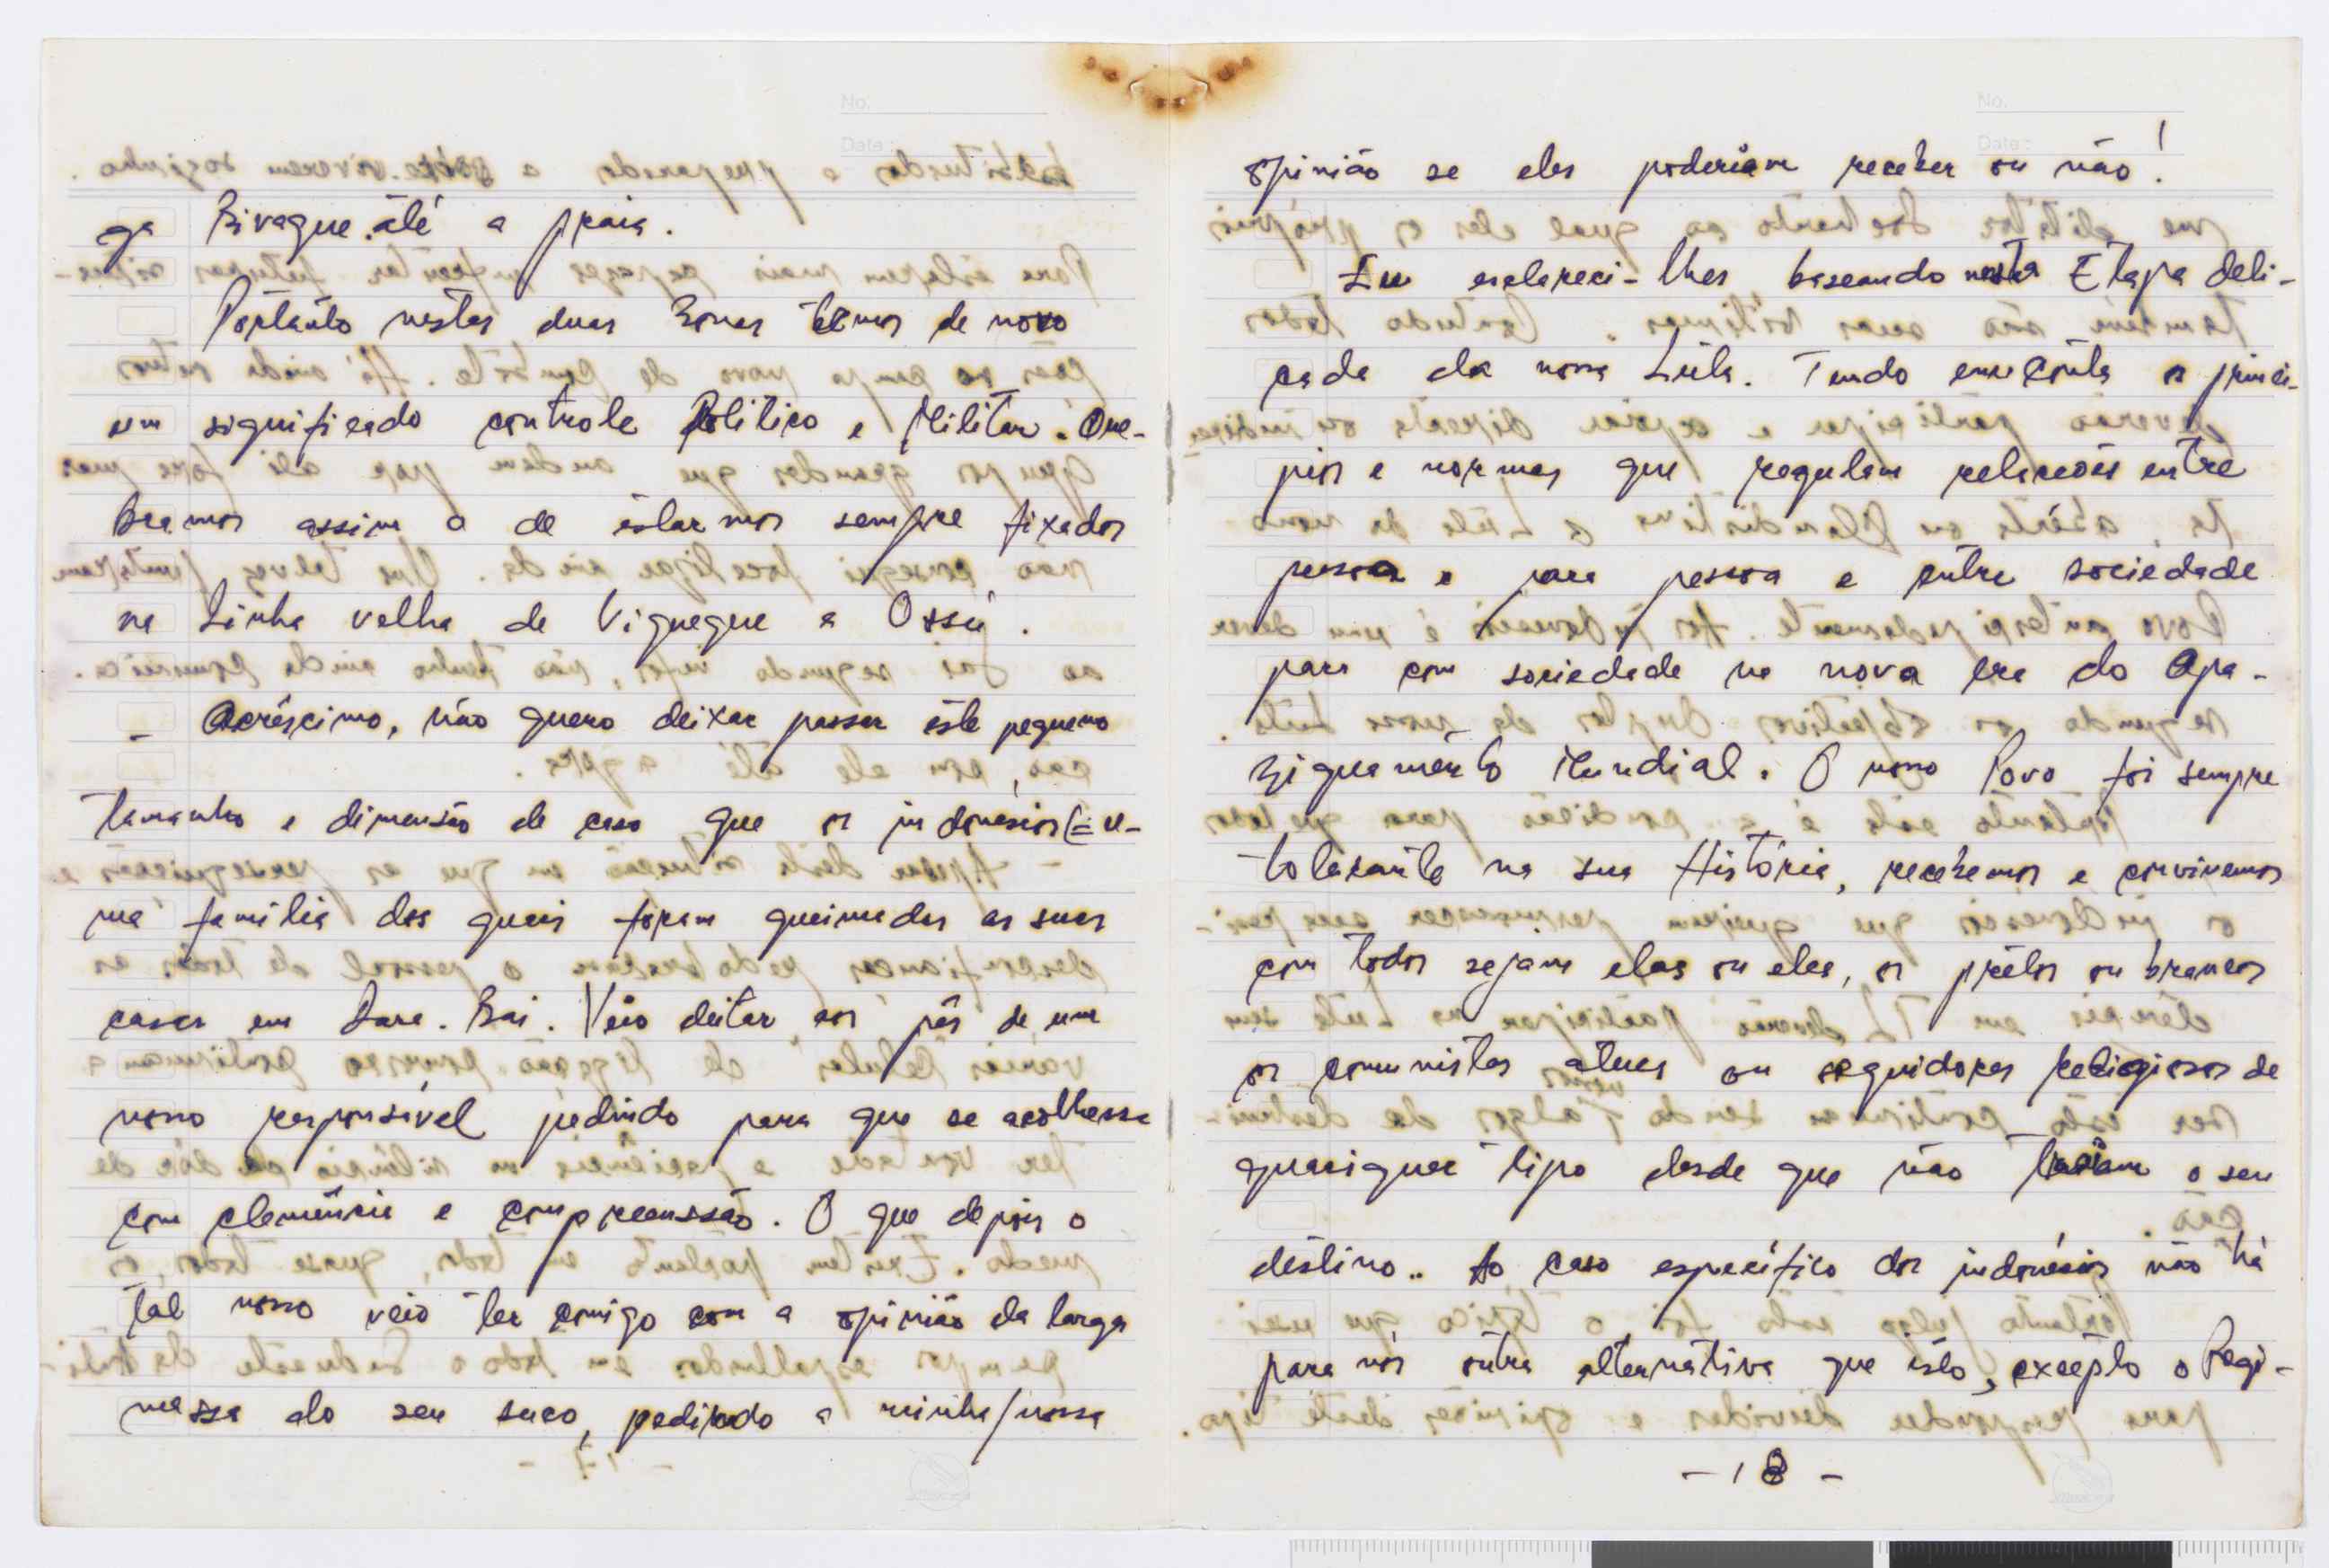 No.
Date:
ga Bivaque até a praia.
Portanto nestas duas Zonas temos de novo
um significado controle Político e Militar. Que-
bramos assim o de estarmos sempre fixados
na Linha velha de Viqueque a Ossú.
- Acréscimo, não quero deixar passar este pequeno
tamanho e dimensão de caso que os indonésios (= u-
ma família dos quais foram queimadas as suas
casas em Dara-Bai. Veio deitar aos pés de um
nosso responsável pedindo para que se acolhesse
com clemência e compreenssão. O que depois o
tal nosso veio ter comigo com a opinião da larga
massa do seu suco, pedindo a minha/nossa
- 17 -
No.
Date:
opinião se eles poderiam receber ou não!
Eu esclareci-lhes baseando nesta Etapa deli-
cada da nossa Luta. Tendo em conta os princi-
pios e normas que regulam relacções entre
pessoa e para pessoa e entre sociedade
para com sociedade na nova era do Apa-
ziguamento Mundial. O nosso Povo foi sempre
tolerante na sua História, recebemos e convivemos
com todos sejam elas ou eles, os prêtos ou brancos
os comunistas ateus ou seguidores religiosos de
quaisquer tipo desde que não traiam o seu
destino.. Ao caso específico dos indonésios não há
para nós outra alternativa que isto, excepto o Regi-
- 18 -